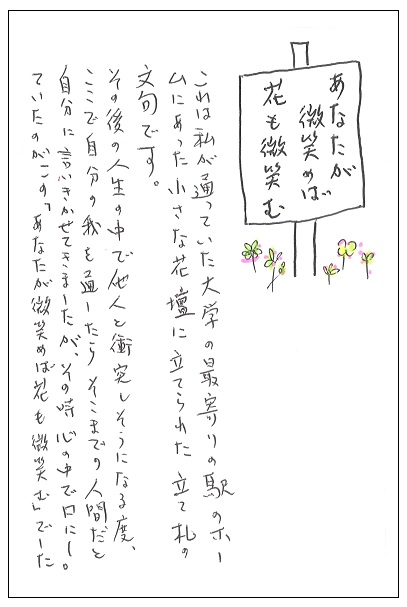 あなたが
微笑めば
花も微笑む
これは私が通っていた大学の最寄りの駅のホー
ムにあった小さな花壇に立てられた立て札の
文句です。
その後の人生の中で他人と衝突しそうになる度、
ここで自分の我を通したらそこまでの人間だと
自分に言いきかせてきましたが、その時心の中で口にし
ていたのがこの「あなたが微笑めば花も微笑む」でした。